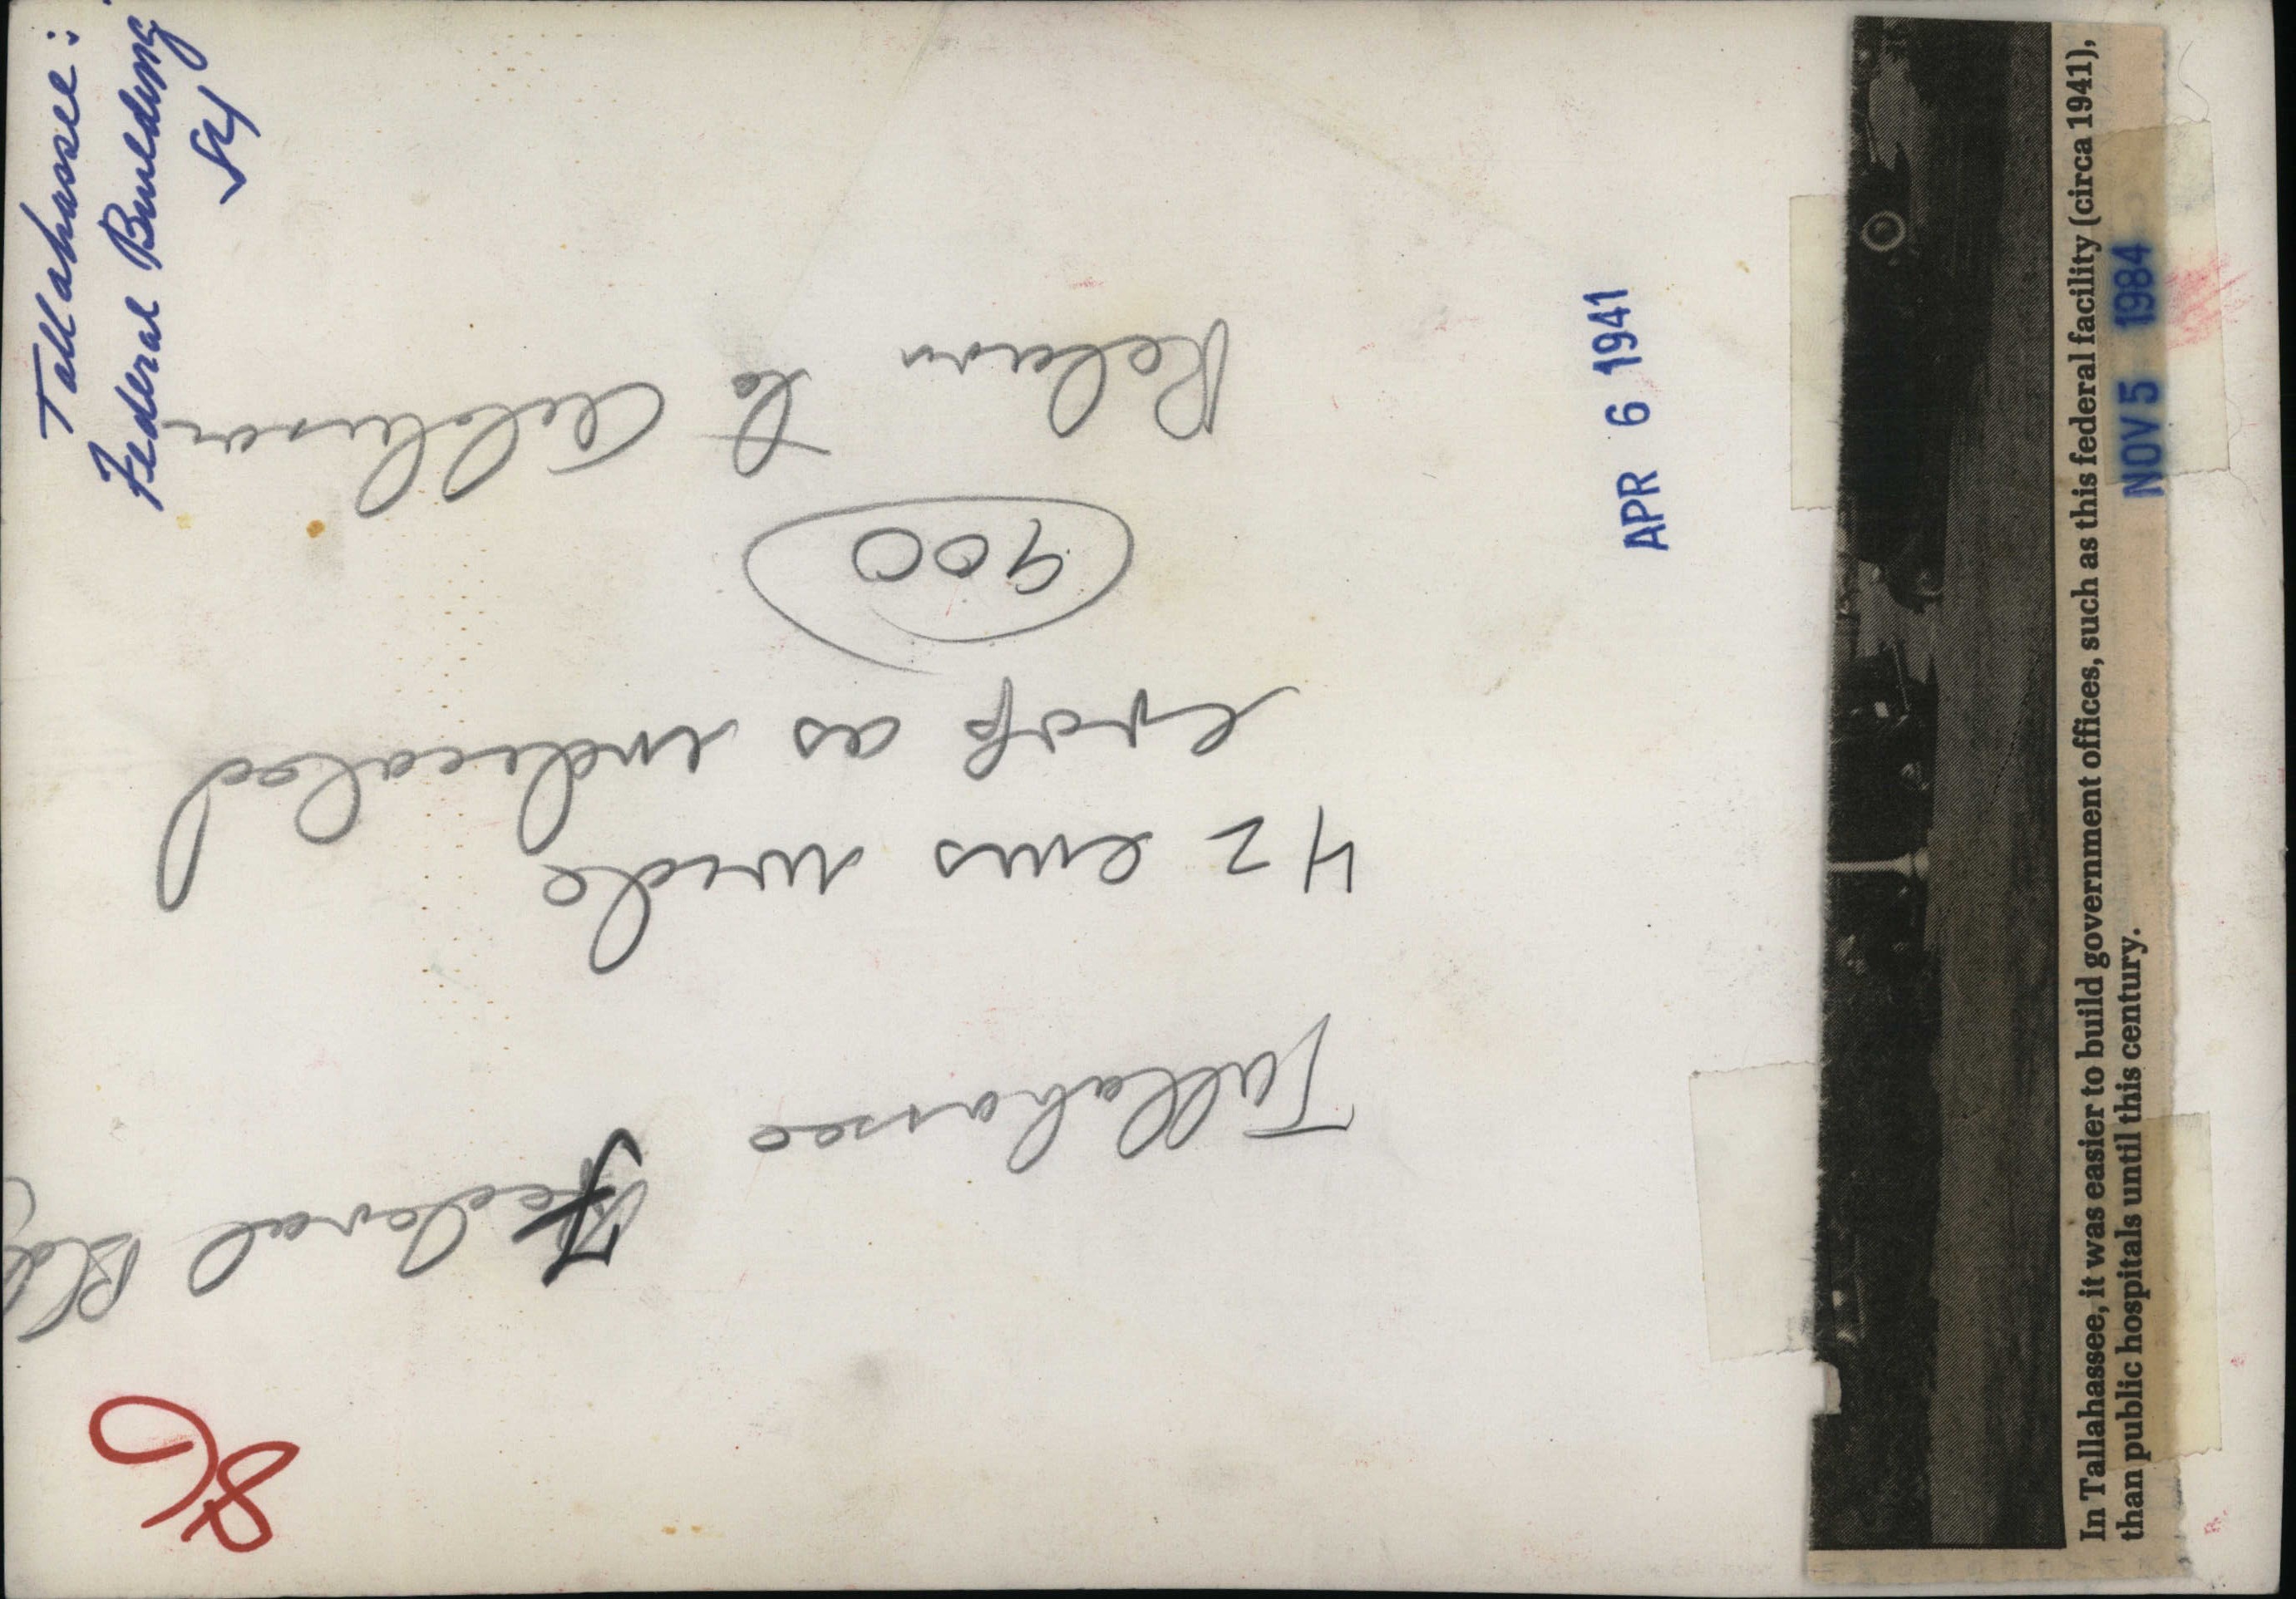 Tallahassee:
Federal Building
Tallahassee Federal Bld
42 ems wide
crop as indicated
900
Return to
APR 6 1941
In Tallahassee, it was easier to build government offices, such as this federal facility (circa 1941),
than public hospitals until this century.
NOV 5 1984